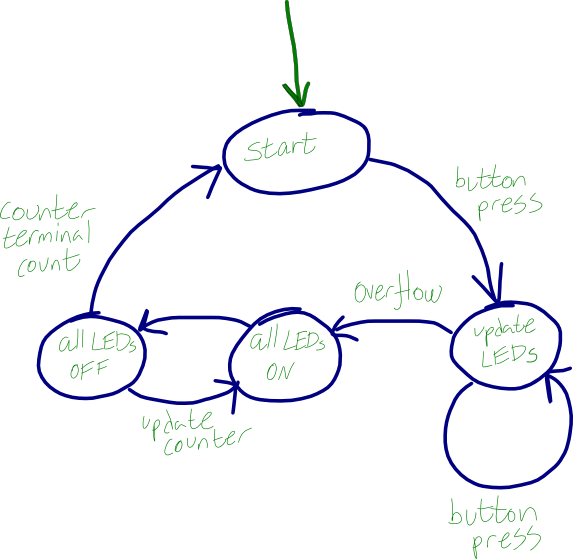 Start
button
press
counter
terminal
count
overflow
update
LEDs
all LEDs
ON
all LEDs
OFF
update
counter
button
press